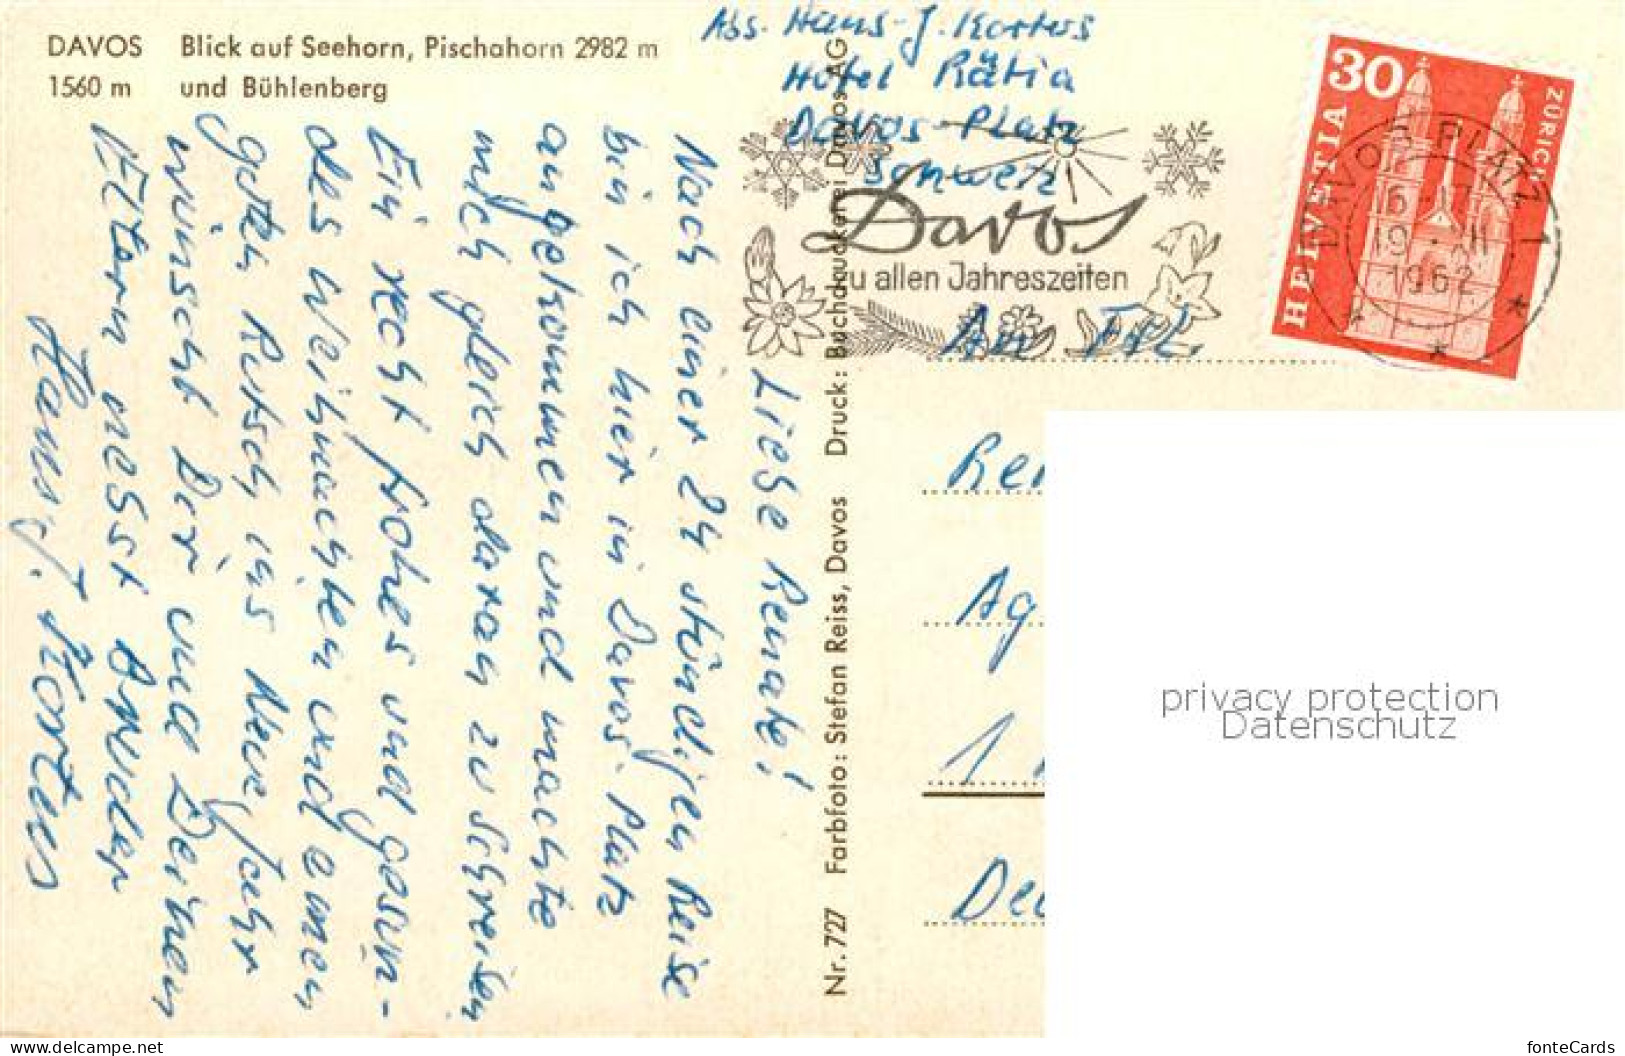 DAVOS Blick auf Seehorn, Pischahorn 2982 m
1560 m und Bühlenberg
Abs. Hans-J. Korters
Hotel Rätia
Davos-Platz
Schweiz
Davos
zu allen Jahreszeiten
30
HELVETIA
ZÜRICH
DAVOS PLATZ 1
1962
An Frl.
Ren
Ag
1
Nr. 727 Farbfoto: Stefan Reiss, Davos Druck: Buchdruckerei Davos AG
Liebe Renate!
Nach einer 24 stündigen Reise
bin ich hier in Davos-Platz
angekommen und machte
mich gleich daran zu schreiben
Ein recht frohes und gesun-
des Weihnachten und einen
guten Rutsch ins Neue Jahr
wünscht Dir und Deinen
Eltern nebst Bruder
Hans J. Korters
privacy protection
Datenschutz
www.delcampe.net
fonteCards